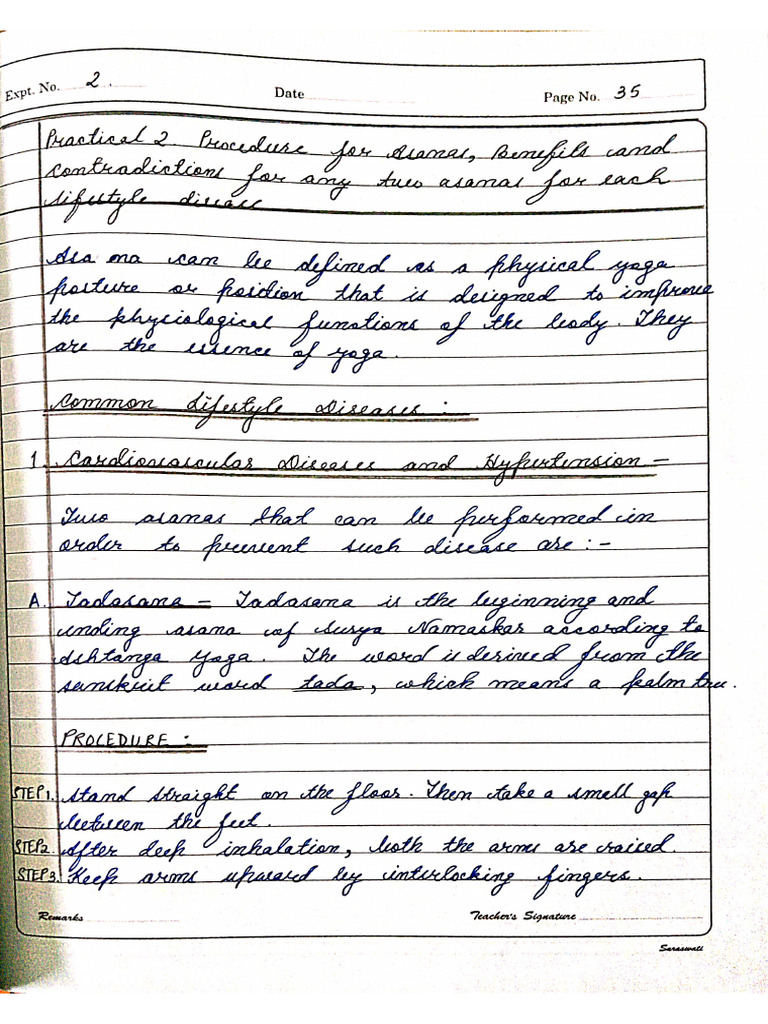 Expt. No. 2.
Date
Page No. 35
Practical 2. Procedure for Asanas, Benefits and
contradictions for any two asanas for each
lifestyle disease
Asa na can be defined as a physical yoga
posture or position that is designed to improve
the physiological functions of the body. They
are the essence of yoga.
Common Lifestyle Diseases :
1. Cardiovascular Diseases and Hypertension -
Two asanas that can be performed in
order to prevent such disease are :-
A. Tadasana - Tadasana is the beginning and
ending asana of Surya Namaskar according to
Ashtanga yoga. The word is derived from the
sanskrit word tada, which means a palm tree.
PROCEDURE :
STEP 1. Stand straight on the floor. Then take a small gap
between the feet.
STEP 2. After deep inhalation, both the arms are raised.
STEP 3. Keep arms upward by interlocking fingers.
Remarks
Teacher's Signature
Saraswati